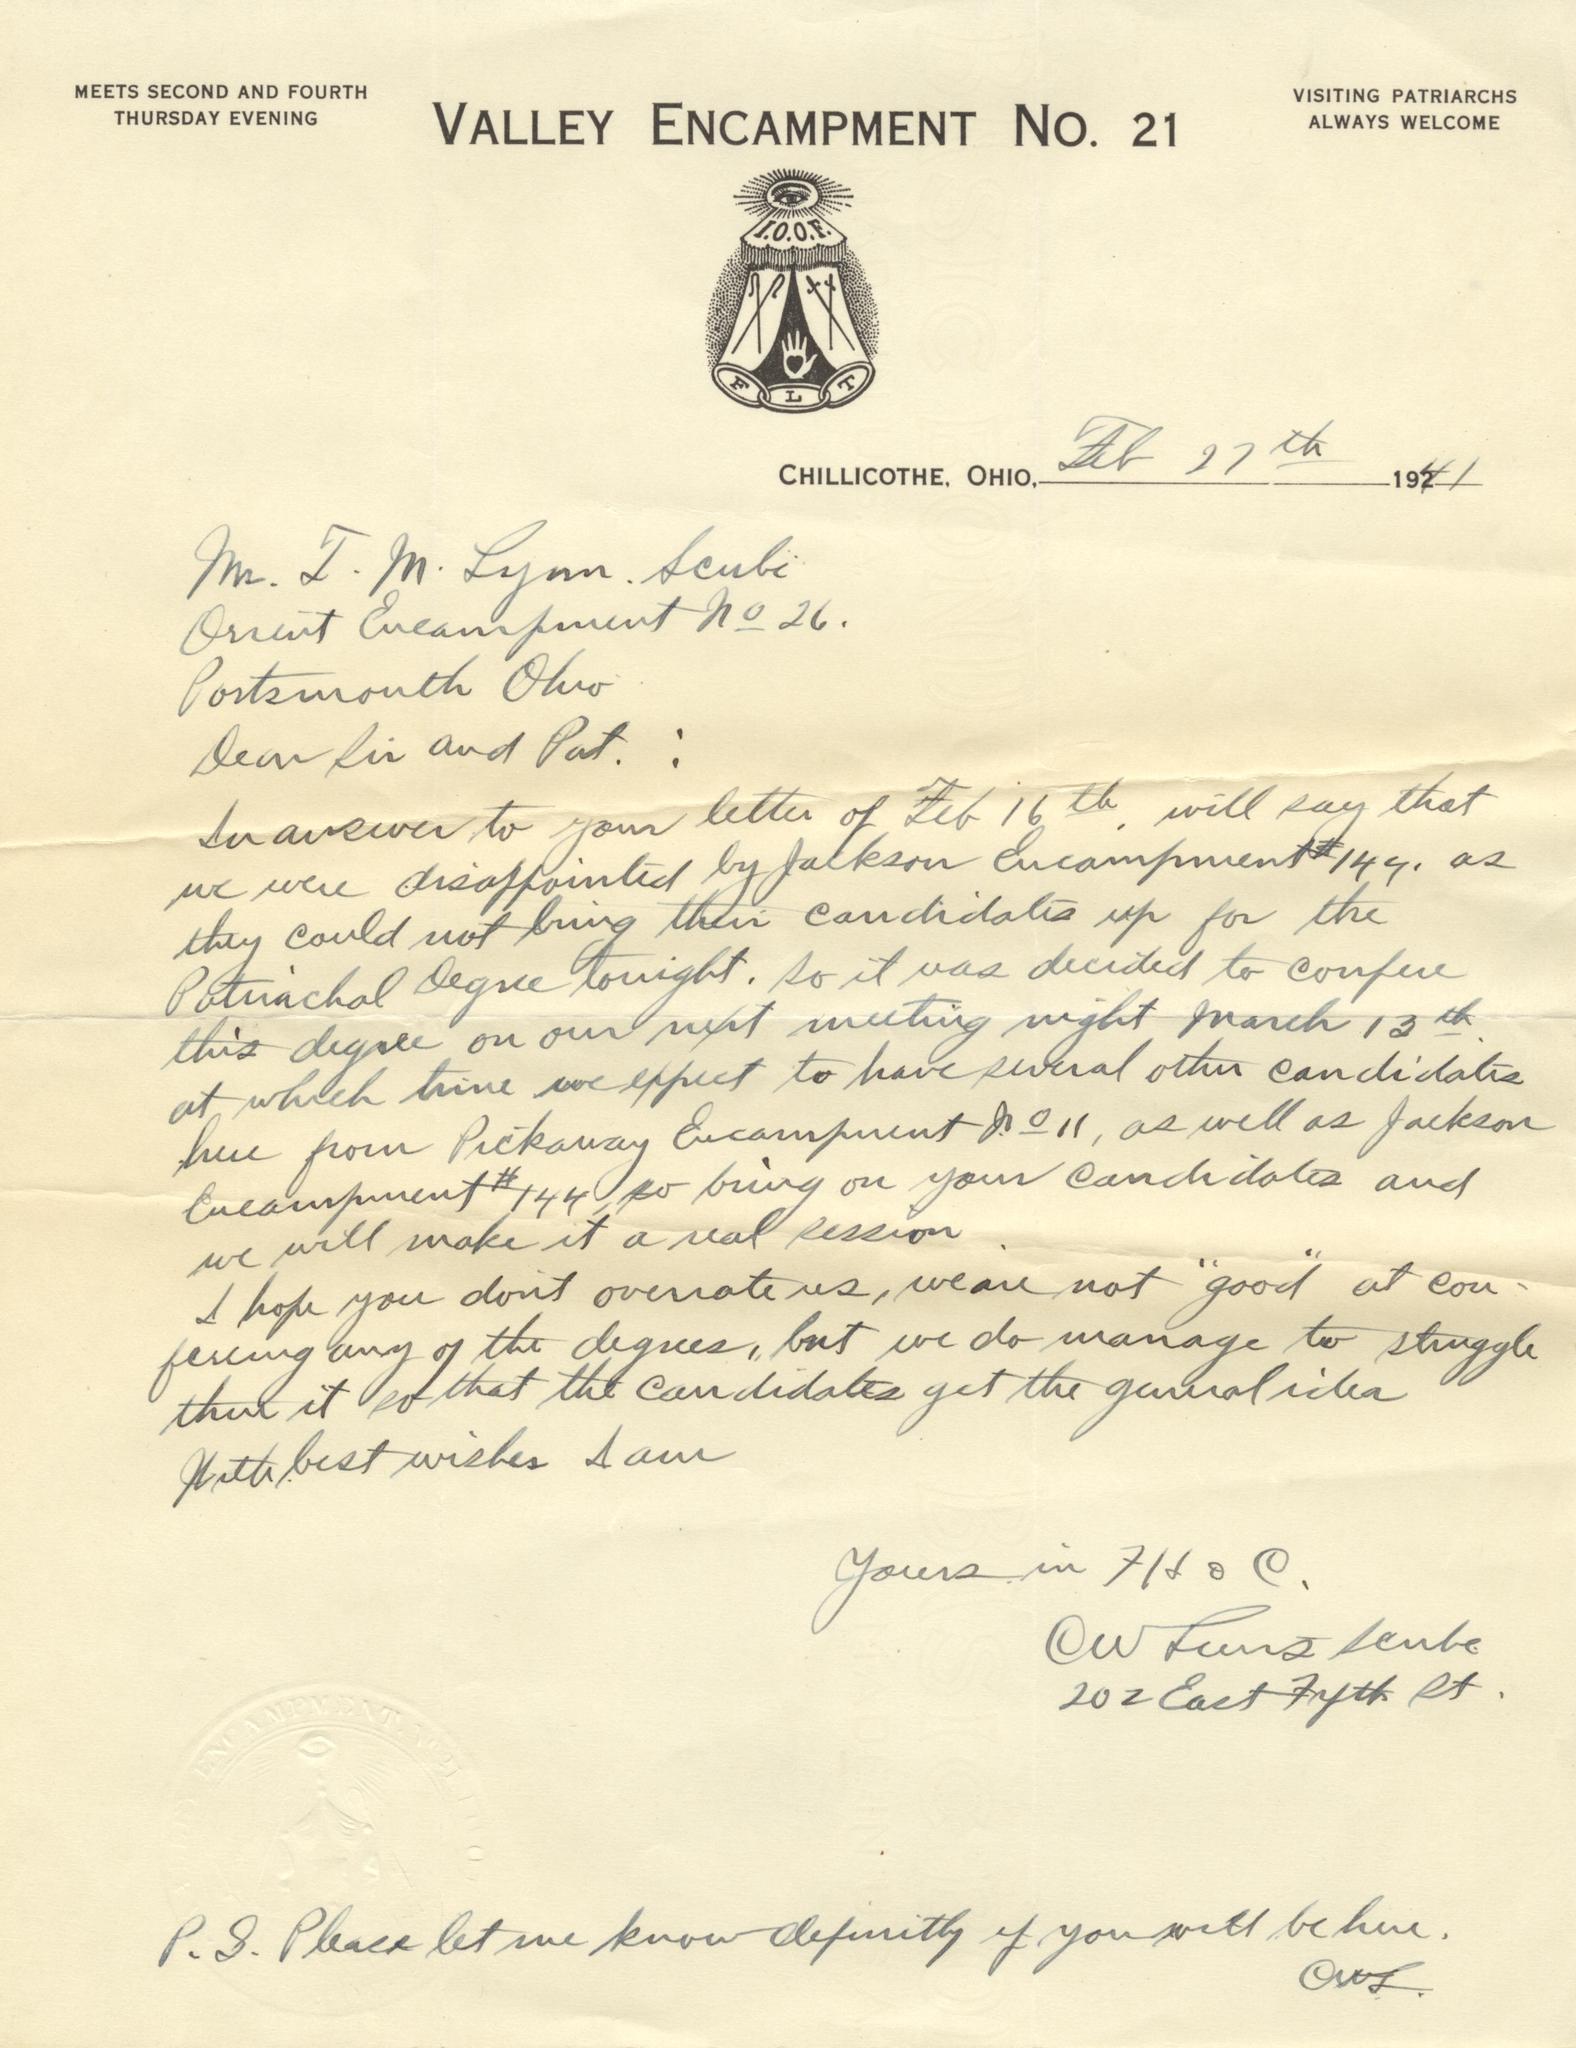 MEETS SECOND AND FOURTH
THURSDAY EVENING
VALLEY ENCAMPMENT NO. 21
VISITING PATRIARCHS
ALWAYS WELCOME
I.O.O.F.
F L T
CHILLICOTHE, OHIO, Feb 27th 1941
Mr. T. M. Lynn. Scribe
Orient Encampment No 26.
Portsmouth Ohio
Dear Sir and Pat. :
In answer to your letter of Feb 16th, will say that
we were disappointed by Jackson Encampment #144. as
they could not bring their candidates up for the
Patriachal Degree tonight. so it was decided to confere
this degree on our next meeting night March 13th.
at which time we expect to have several other candidates
here from Pickaway Encampment No 11, as well as Jackson
Encampment #144, so bring on your candidates and
we will make it a real session.
I hope you don't overrate us, we are not "good" at con-
fering any of the degrees, but we do manage to struggle
thru it so that the candidates get the general idea
With best wishes I am
Yours in F H & C.
CW Scribe
202 East Fyth St.
ENCAMPMENT No 21
P. S. Please let me know definitly if you will be here.
CWL.